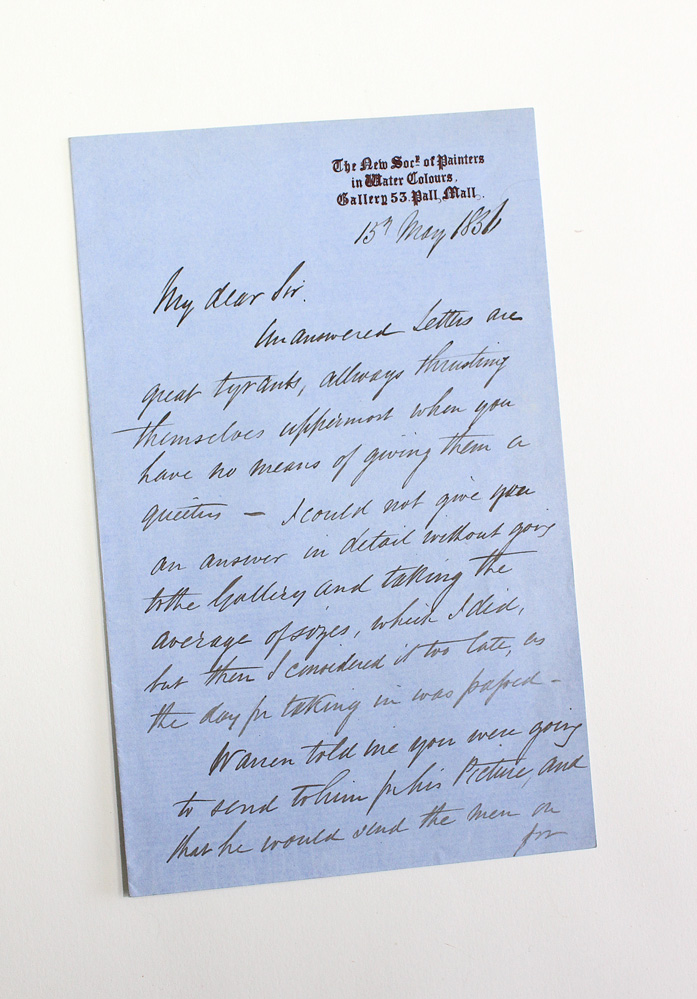 The New Socy. of Painters
in Water Colours.
Gallery 53. Pall Mall.
15th May 1856
My dear Sir.
Unanswered Letters are
great tyrants, allways thrusting
themselves uppermost when you
have no means of giving them a
quietus — I could not give you
an answer in detail without going
to the Gallery and taking the
average of sizes, which I did,
but then I considered it too late, as
the day for taking in was passed —
Warren told me you were going
to send to him for his Picture, and
that he would send the men on
for